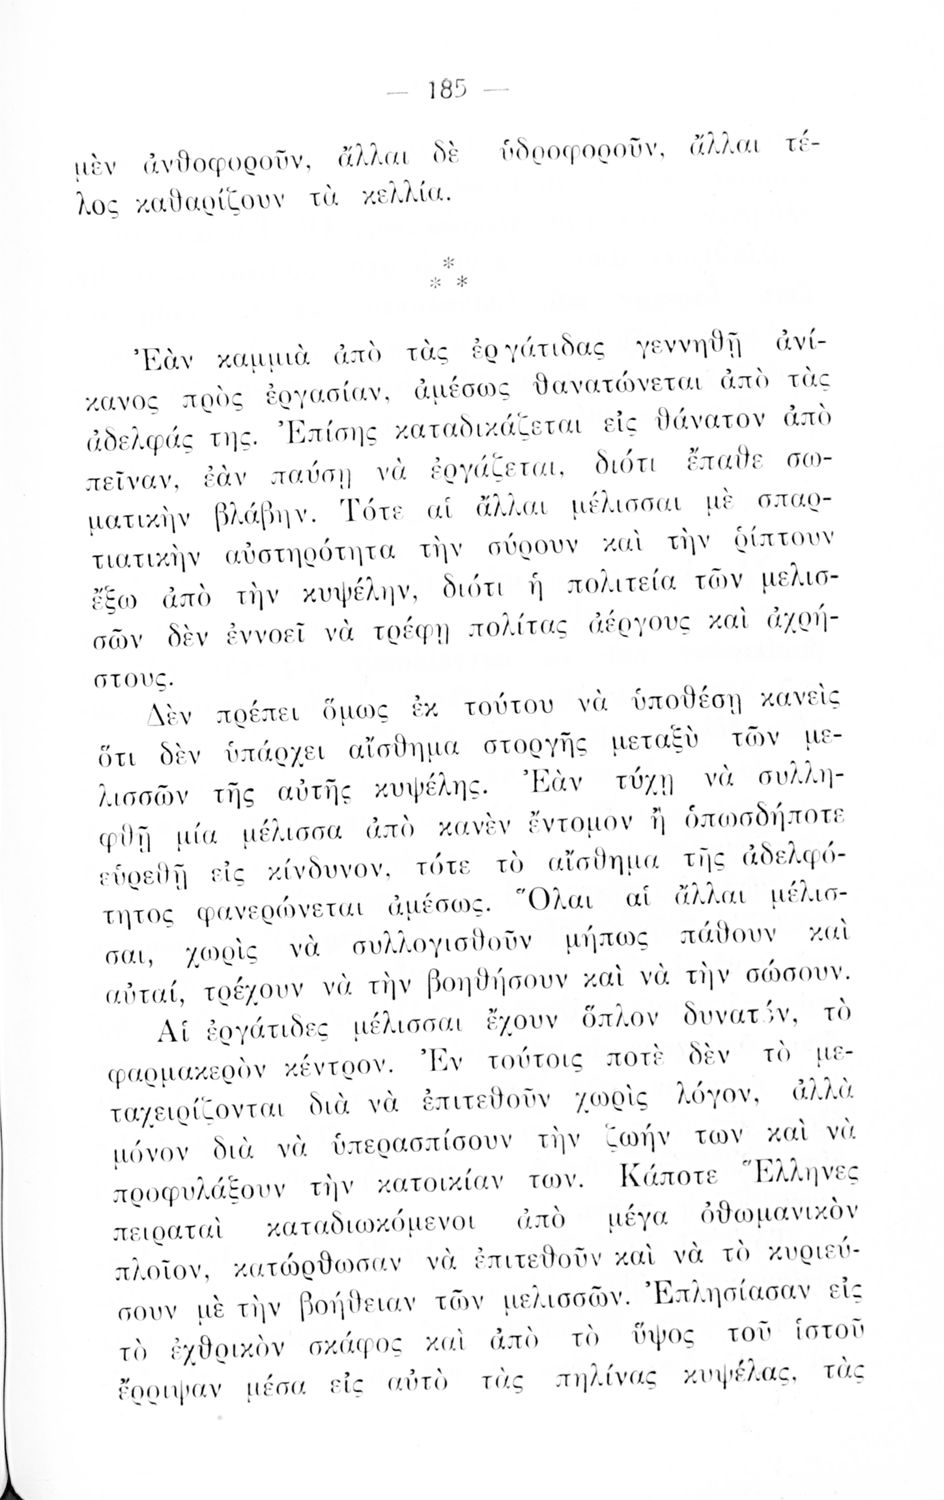 — 185 —
μὲν ἀνθοφοροῦν, ἄλλαι δὲ ὑδροφοροῦν, ἄλλαι τέ-
λος καθαρίζουν τὰ κελλία.
*
* *
Ἐὰν καμμιὰ ἀπὸ τὰς ἐργάτιδας γεννηθῇ ἀνί-
κανος πρὸς ἐργασίαν, ἀμέσως θανατώνεται ἀπὸ τὰς
ἀδελφάς της. Ἐπίσης καταδικάζεται εἰς θάνατον ἀπὸ
πεῖναν, ἐὰν παύσῃ νὰ ἐργάζεται, διότι ἔπαθε σω-
ματικὴν βλάβην. Τότε αἱ ἄλλαι μέλισσαι μὲ σπαρ-
τιατικὴν αὐστηρότητα τὴν σύρουν καὶ τὴν ῥίπτουν
ἔξω ἀπὸ τὴν κυψέλην, διότι ἡ πολιτεία τῶν μελισ-
σῶν δὲν ἐννοεῖ νὰ τρέφῃ πολίτας ἀέργους καὶ ἀχρή-
στους.
Δὲν πρέπει ὅμως ἐκ τούτου νὰ ὑποθέσῃ κανεὶς
ὅτι δὲν ὑπάρχει αἴσθημα στοργῆς μεταξὺ τῶν με-
λισσῶν τῆς αὐτῆς κυψέλης. Ἐὰν τύχῃ νὰ συλλη-
φθῇ μία μέλισσα ἀπὸ κανὲν ἔντομον ἢ ὁπωσδήποτε
εὑρεθῇ εἰς κίνδυνον, τότε τὸ αἴσθημα τῆς ἀδελφό-
τητος φανερώνεται ἀμέσως. Ὅλαι αἱ ἄλλαι μέλισ-
σαι, χωρὶς νὰ συλλογισθοῦν μήπως πάθουν καὶ
αὐταί, τρέχουν νὰ τὴν βοηθήσουν καὶ νὰ τὴν σώσουν.
Αἱ ἐργάτιδες μέλισσαι ἔχουν ὅπλον δυνατόν, τὸ
φαρμακερὸν κέντρον. Ἐν τούτοις ποτὲ δὲν τὸ με-
ταχειρίζονται διὰ νὰ ἐπιτεθοῦν χωρὶς λόγον, ἀλλὰ
μόνον διὰ νὰ ὑπερασπίσουν τὴν ζωήν των καὶ νὰ
προφυλάξουν τὴν κατοικίαν των. Κάποτε Ἕλληνες
πειραταὶ καταδιωκόμενοι ἀπὸ μέγα ὀθωμανικὸν
πλοῖον, κατώρθωσαν νὰ ἐπιτεθοῦν καὶ νὰ τὸ κυριεύ-
σουν μὲ τὴν βοήθειαν τῶν μελισσῶν. Ἐπλησίασαν εἰς
τὸ ἐχθρικὸν σκάφος καὶ ἀπὸ τὸ ὕψος τοῦ ἱστοῦ
ἔρριψαν μέσα εἰς αὐτὸ τὰς πηλίνας κυψέλας, τὰς